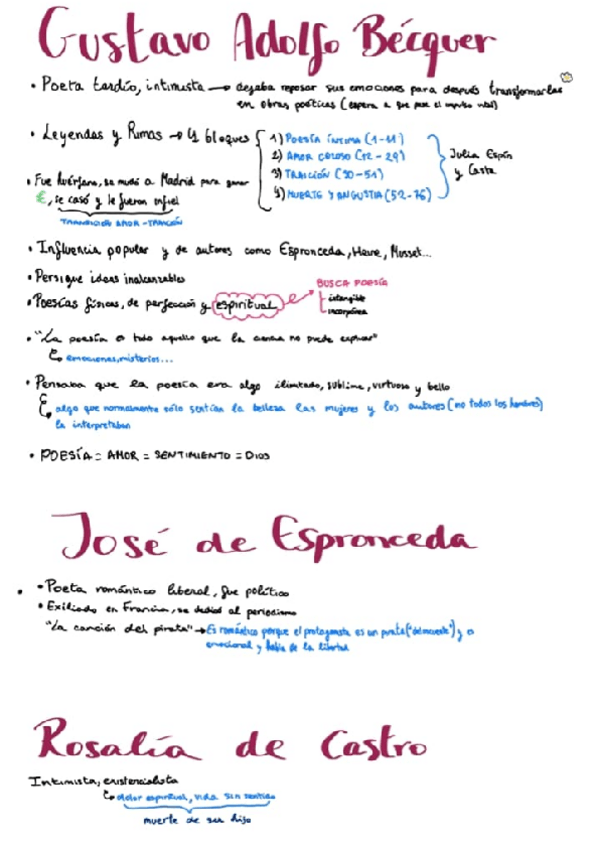 Gustavo Adolfo Bécquer
• Poeta tardío, intimista → dejaba reposar sus emociones para después transformarlas
en obras poéticas (espera a que pase el impulso vital)
• Leyendas y Rimas → 4 bloques { 1) POESÍA ÍNTIMA (1-11)
2) AMOR CELOSO (12-29)
3) TRAICIÓN (30-51)
4) MUERTE Y ANGUSTIA (52-76)
} Julia Espín
y Casta
• Fue huérfano, se mudó a Madrid para ganar
€, se casó y le fueron infiel
TRANSICIÓN AMOR-TRAICIÓN
• Influencia popular y de autores como Espronceda, Heine, Musset...
• Persigue ideas inalcanzables
• Poesías físicas, de perfección y espiritual → BUSCA POESÍA
intangible
incorpórea
• "La poesía es todo aquello que la ciencia no puede explicar"
↳ emociones, misterios...
• Pensaba que la poesía era algo ilimitado, sublime, virtuoso y bello
↳ algo que normalmente sólo sentían la belleza las mujeres y los autores (no todos los hombres)
la interpretaban
• POESÍA = AMOR = SENTIMIENTO = DIOS
José de Espronceda
• Poeta romántico liberal, fue político
• Exiliado en Francia, se dedicó al periodismo
"La canción del pirata" → Es romántico porque el protagonista es un pirata ("delincuente") y es
emocional y habla de la libertad
Rosalía de Castro
Intimista, existencialista
↳ dolor espiritual, vida sin sentido
muerte de su hijo